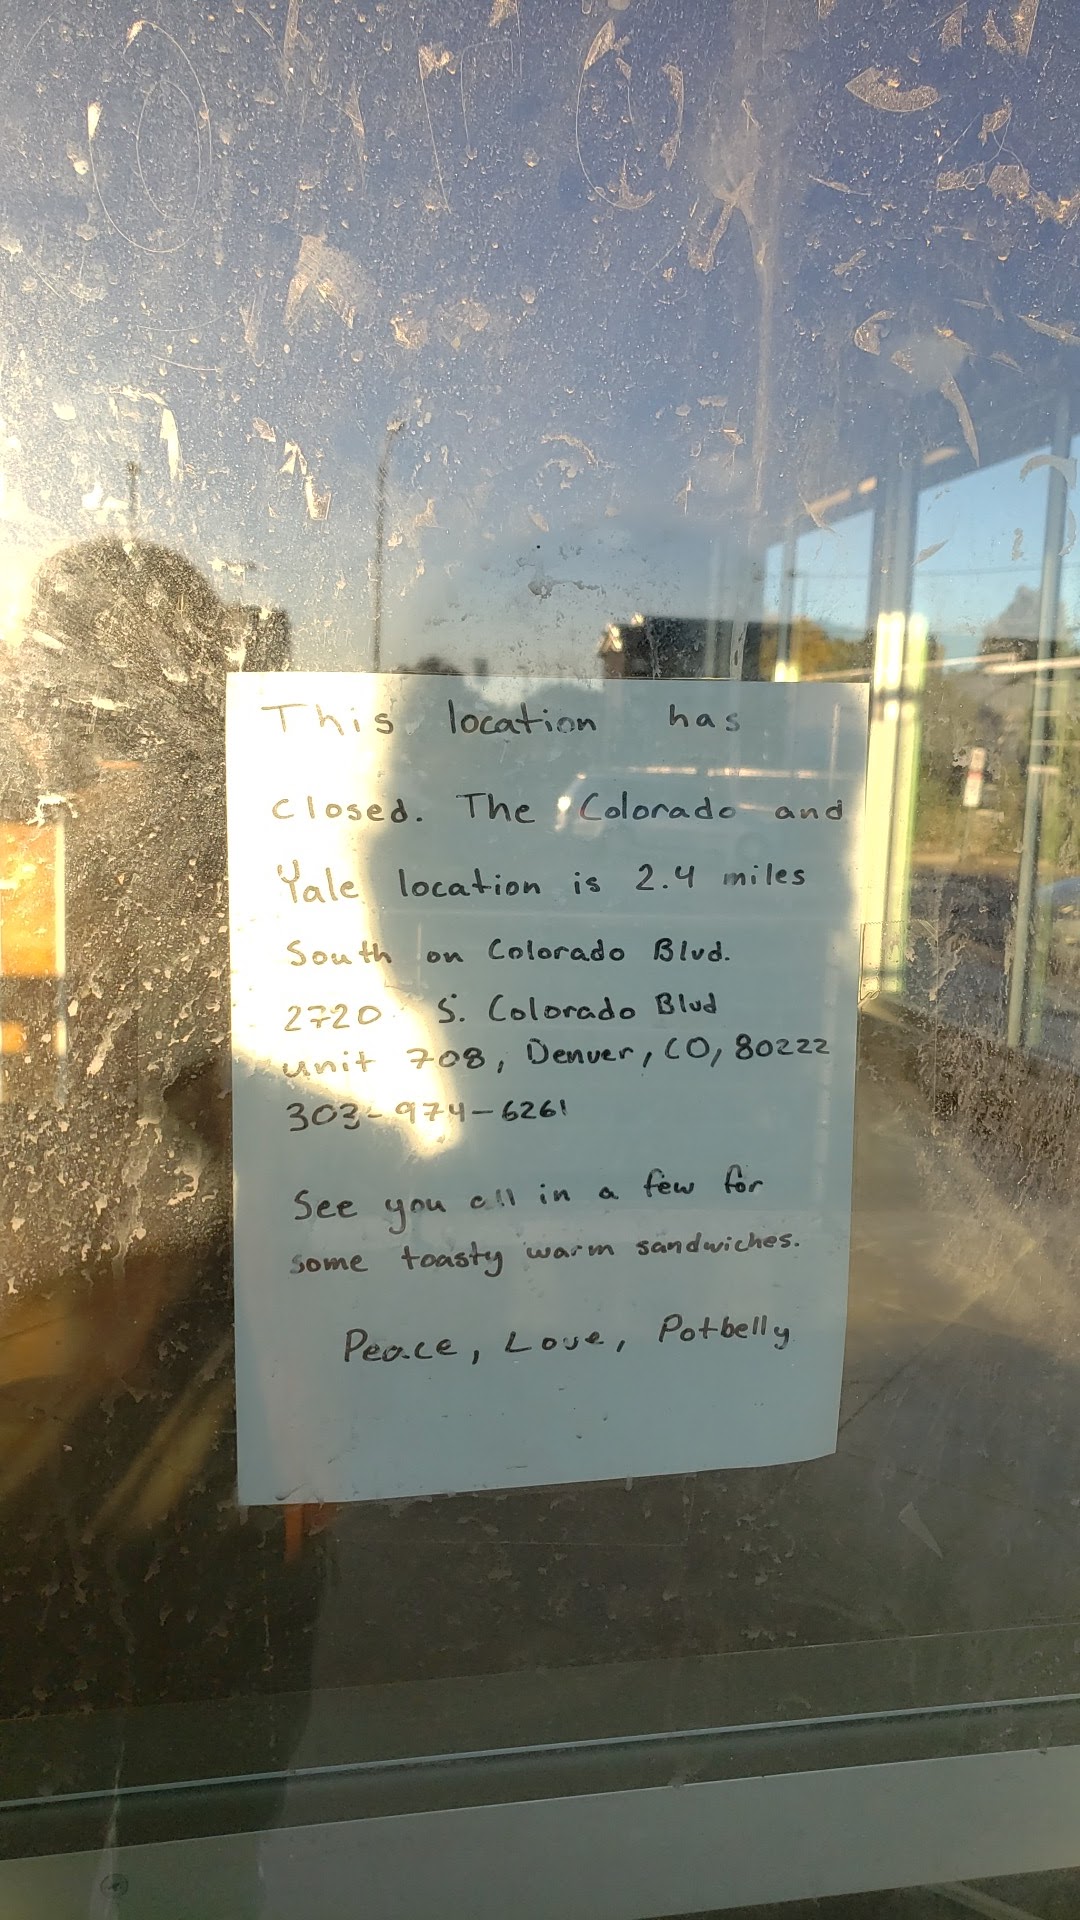 This location has
closed. The Colorado and
Yale location is 2.4 miles
South on Colorado Blvd.
2720 S. Colorado Blvd
unit 708, Denver, CO, 80222
303-974-6261
See you all in a few for
some toasty warm sandwiches.
Peace, Love, Potbelly